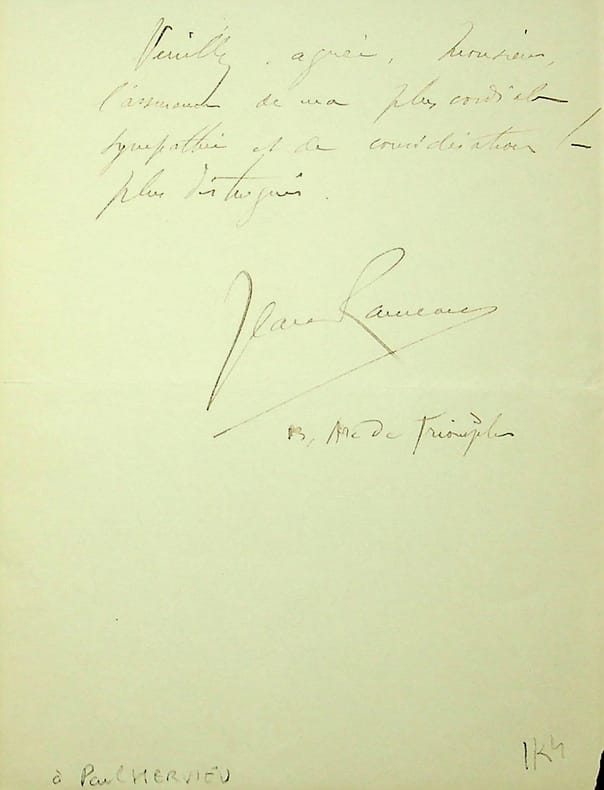 Veuillez agréer, Monsieur,
l'assurance de ma plus cordiale
sympathie et de considération la
plus distinguée.
Jean Rameau
13, Arc de Triomphe
à Paul HERVIEU